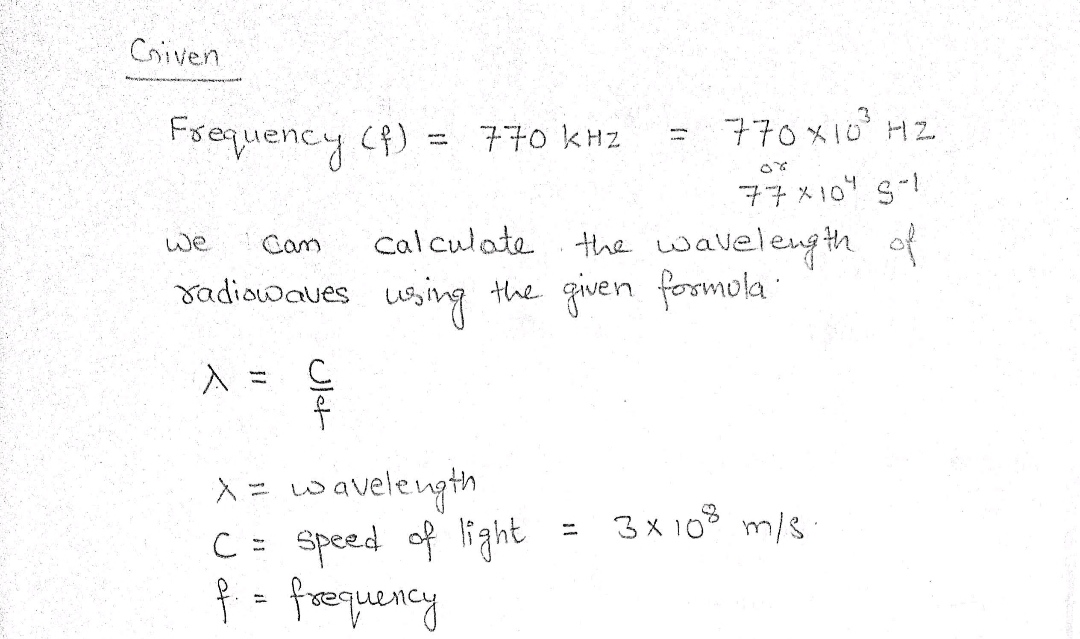 Given
Frequency (f) = 770 kHz = 770 × 10³ Hz
or
77 × 10⁴ s⁻¹
we can calculate the wavelength of
radiowaves using the given formula.
λ = c/f
λ = wavelength
C = speed of light = 3 × 10⁸ m/s.
f = frequency